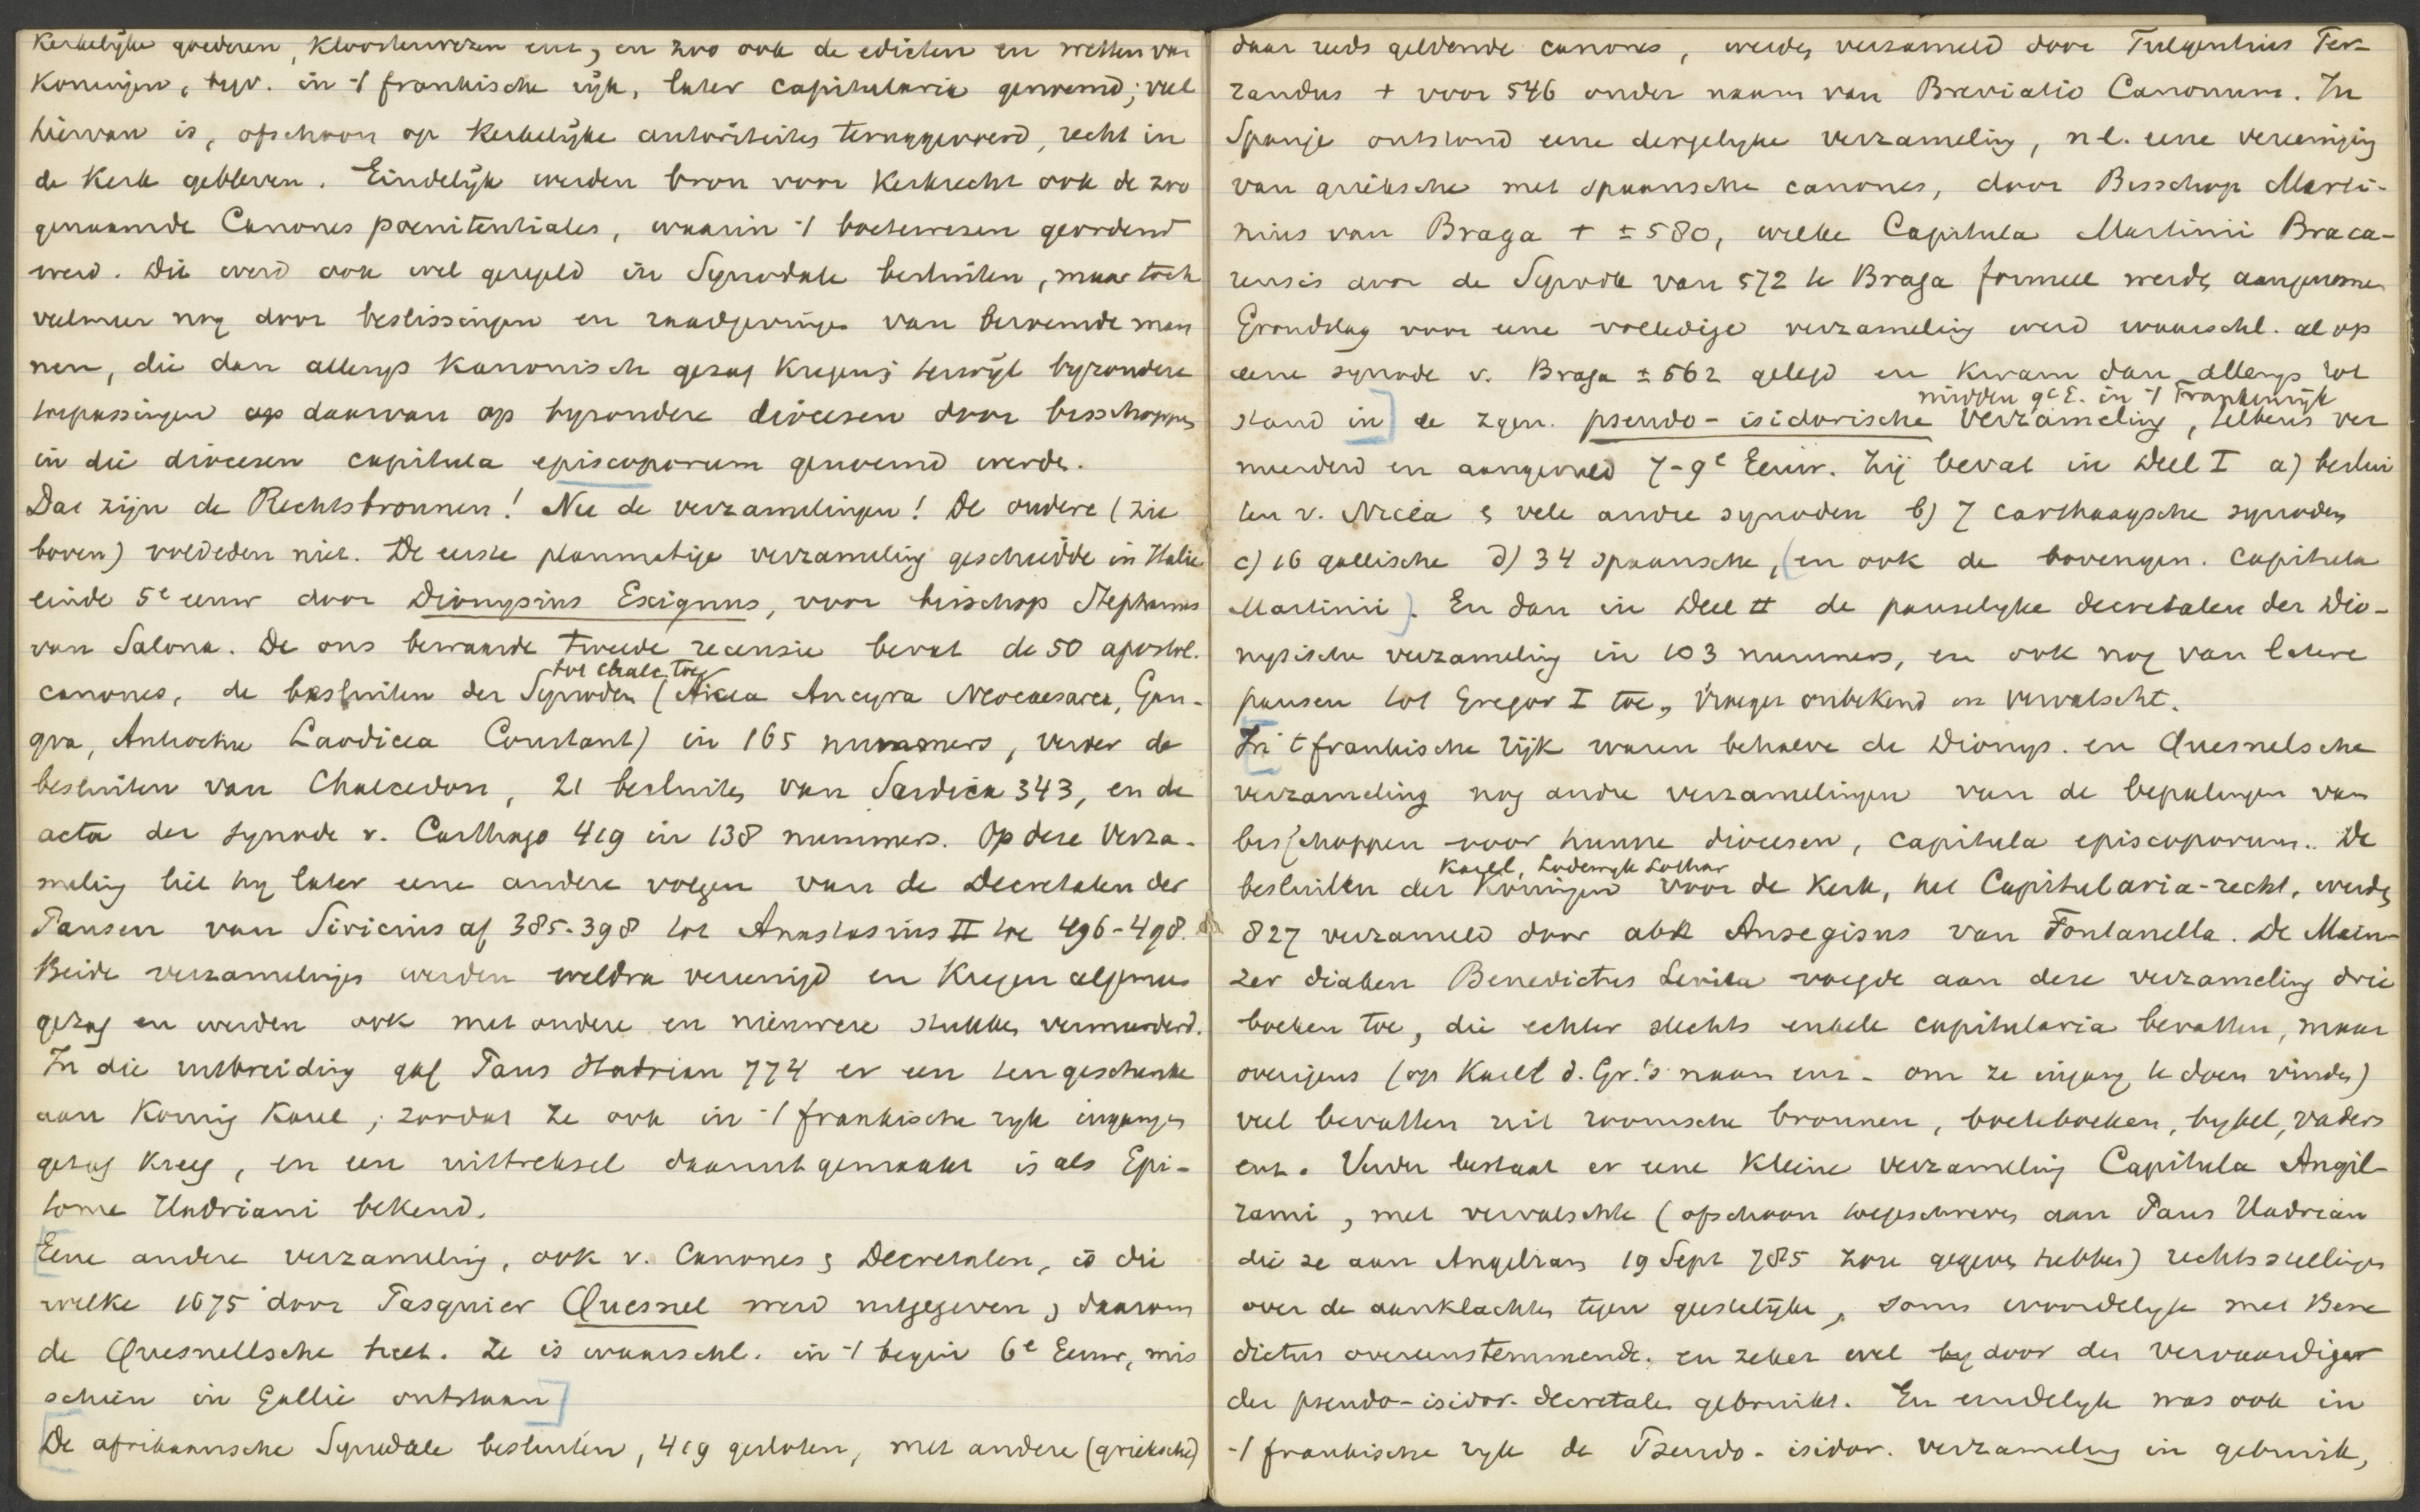 Kerkelijke goederen, Kloosterwezen enz, en zoo ook de edicten en wetten van
Koningen, bijv. in 't frankische rijk, later capitularia genoemd; veel
hiervan is, ofschoon op Kerkelijke autoriteiten teruggevoerd, recht in
de Kerk gebleven. Eindelijk werden bron voor Kerkrecht ook de zoo
genaamde Canones poenitentiales, waarin 't boetewezen geordend
werd. Dit werd ook wel geregeld in Synodale besluiten, maar toch
veelmeer nog door beslissingen en raadgevingen van beroemde man
nen, die dan allengs Kanonisch gezag Kregen; terwijl byzondere
toepassingen daarvan op byzondere diocesen door bisschoppen
in die diocesen capitula episcoporum genoemd werden.
Dat zijn de Rechtsbronnen! Nu de verzamelingen! De oudere (zie
boven) voldeden niet. De eerste planmatige verzameling geschiedde in Italie
einde 5e eeuw door Dionysius Exiguus, voor bisschop Stephanus
van Salona. De ons bewaarde tweede recensie bevat de 50 apostol.
tot Chalc. toe
canones, de besluiten der Synoden (Nicea Ancyra Neocaesarea, Gan-
gra, Antiochie Laodicea Constant) in 165 nummers, verder de
besluiten van Chalcedon, 21 besluiten van Sardica 343, en de
acta der synode v. Carthago 419 in 138 nummers. Op deze Verza-
meling liet hy later eene andere volgen van de Decretalen der
Pausen van Siricius af 385-398 tot Anastasius II toe 496-498.
Beide verzamelingen werden weldra vereenigd en Kregen algemeen
gezag en werden ook met andere en nieuwere stukken vermeerderd.
In die uitbreiding gaf Paus Hadrian 774 er een ten geschenke
aan Koning Karel; zoodat ze ook in 't frankische ryk ingang en
gezag Kreeg, en een uittreksel daaruit gemaakt is als Epi-
tome Hadriani bekend.
Eene andere verzameling, ook v. Canones & Decretalen, is die
welke 1675 door Pasquier Quesnel werd uitgegeven, & daarom
de Quesnellsche heet. Ze is waarschl. in 't begin 6e Eeuw, mis
schien in Gallie ontstaan]
[De afrikaansche Synodale besluiten, 419 gesloten, met andere (grieksche)
daar reeds geldende canones, werden verzameld door Fulgentius Fer-
randus + voor 546 onder naam van Breviatio Canonum. In
Spanje ontstond eene dergelyke verzameling, nl. eene vereeniging
van grieksche met spaansche canones, door Bisschop Marti-
nius van Braga + ± 580, welke Capitula Martinii Braca-
rensis door de Synode van 572 te Braga formeel werden aangenomen
Grondslag voor eene volledige verzameling werd waarschl. al op
eene synode v. Braga ± 562 gelegd en kwam dan allengs tot
midden 9e E. in 't Frankenrijk
stand in] de zgen. pseudo-isidorische verzameling, telkens ver
meerderd en aangevuld 7-9e Eeuw. Zij bevat in Deel I a) beslui
ten v. Nicea & vele andre synoden b) 7 carthaagsche synoden
c) 16 gallische d) 34 spaansche, (en ook de bovengen. capitula
Martinii). En dan in Deel II de pauselyke decretalen der Dio-
nysische verzameling in 103 nummers, en ook nog van latere
pausen tot Gregor I toe, vroeger onbekend en vervalscht.
[In 't frankische rijk waren behalve de Dionys. en Quesnelsche
verzameling nog andre verzamelingen van de bepalingen van
bisschoppen voor hunne diocesen, capitula episcoporum. De
Karel, Lodewyk Lothar
besluiten der Koningen voor de Kerk, het Capitularia-recht, werden
827 verzameld door abt Ansegisus van Fontanella. De Main-
zer diaken Benedictus Levita voegde aan deze verzameling drie
boeken toe, die echter slechts enkele capitularia bevatten, maar
overigens (op Karel d. Gr.'s naam enz - om ze ingang te doen vinden)
veel bevatten uit roomsche bronnen, boeteboeken, bybel, vaders
enz. Verder bestaat er eene Kleine verzameling Capitula Angil-
rami, met vervalschte (ofschoon toegeschreven aan Paus Hadrian
die ze aan Angelram 19 Sept 785 zou gegeven hebben) rechtsstellingen
over de aanklachten tegen geestelijke, soms woordelyk met Bene
dictus overeenstemmende, en zeker wel door den vervaardiger
der pseudo-isidor. decretalen gebruikt. En eindelyk was ook in
't frankische ryk de Pseudo-isidor. verzameling in gebruik,